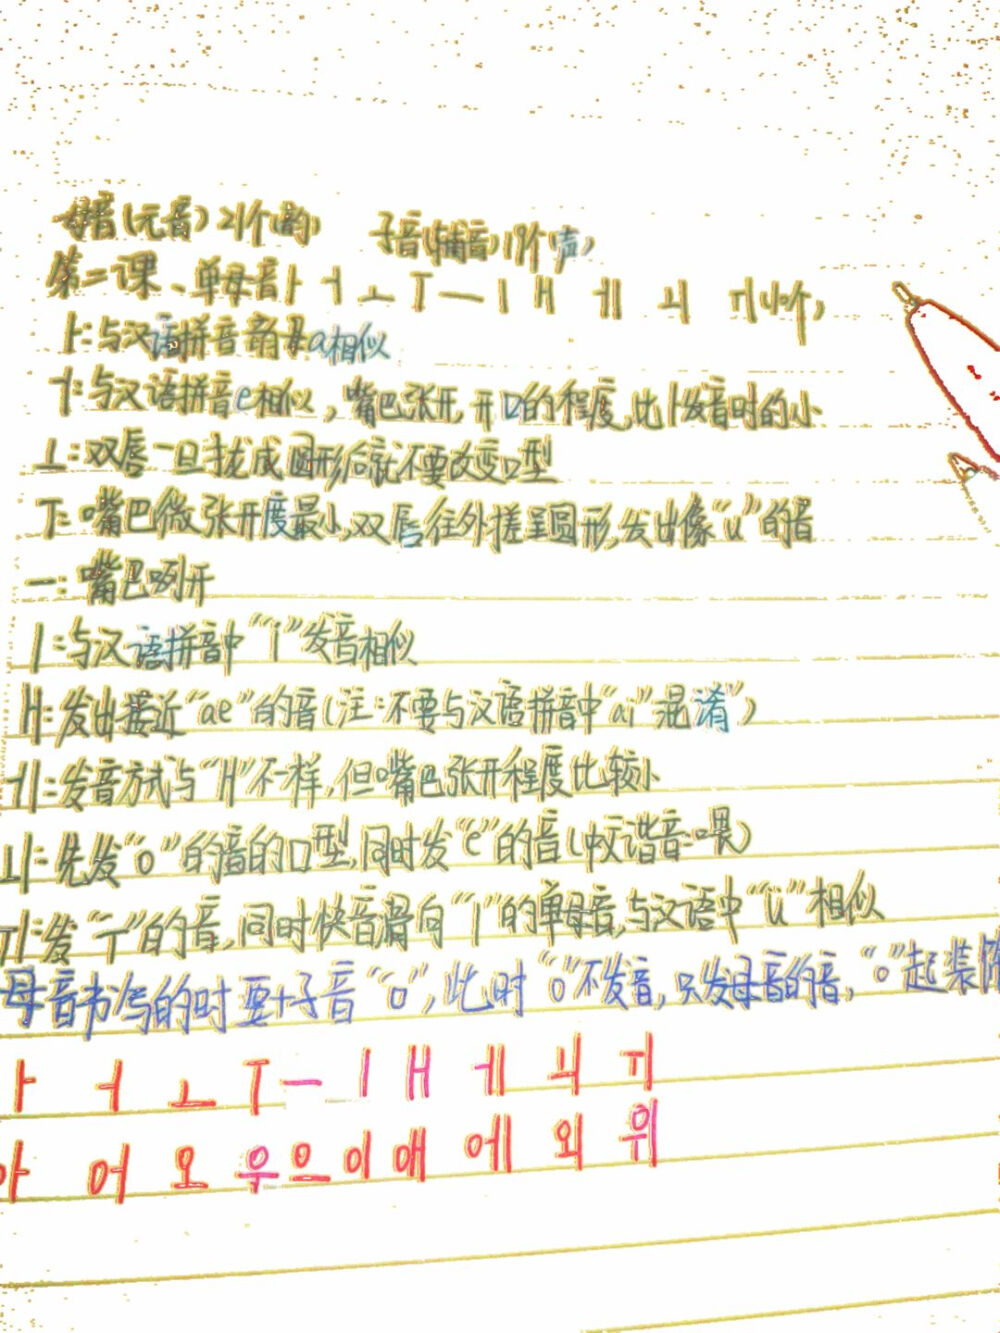 母音(元音)21个(韵) 子音(辅音)19个(声)
第二课、单母音ㅏ ㅓ ㅗ ㅜ ㅡ ㅣ ㅐ ㅔ ㅚ ㅟ(10个)
ㅏ:与汉语拼音韵母a相似
ㅓ:与汉语拼音e相似,嘴巴张开,开口的程度,比ㅏ发音时的小
ㅗ:双唇一旦拢成圆形后就不要改变口型
ㅜ:嘴巴微张开度最小,双唇往外搓呈圆形,发出像"u"的音
ㅡ:嘴巴咧开
ㅣ:与汉语拼音中"i"发音相似
ㅐ:发出接近"ae"的音(注:不要与汉语拼音中"ai"混淆")
ㅔ:发音方式与"ㅐ"不一样,但嘴巴张开程度比较小
ㅚ:先发"o"的音的口型,同时发"e"的音(中文谐音:喂)
ㅟ:发"ㅜ"的音,同时快音滑向"ㅣ"的单母音,与汉语中"ü"相似
母音书写的时要+子音"o",此时"o"不发音,只发母音的音,"o"起装饰
ㅏ ㅓ ㅗ ㅜ ㅡ ㅣ ㅐ ㅔ ㅚ ㅟ
아 어 오 우 으 이 애 에 외 위